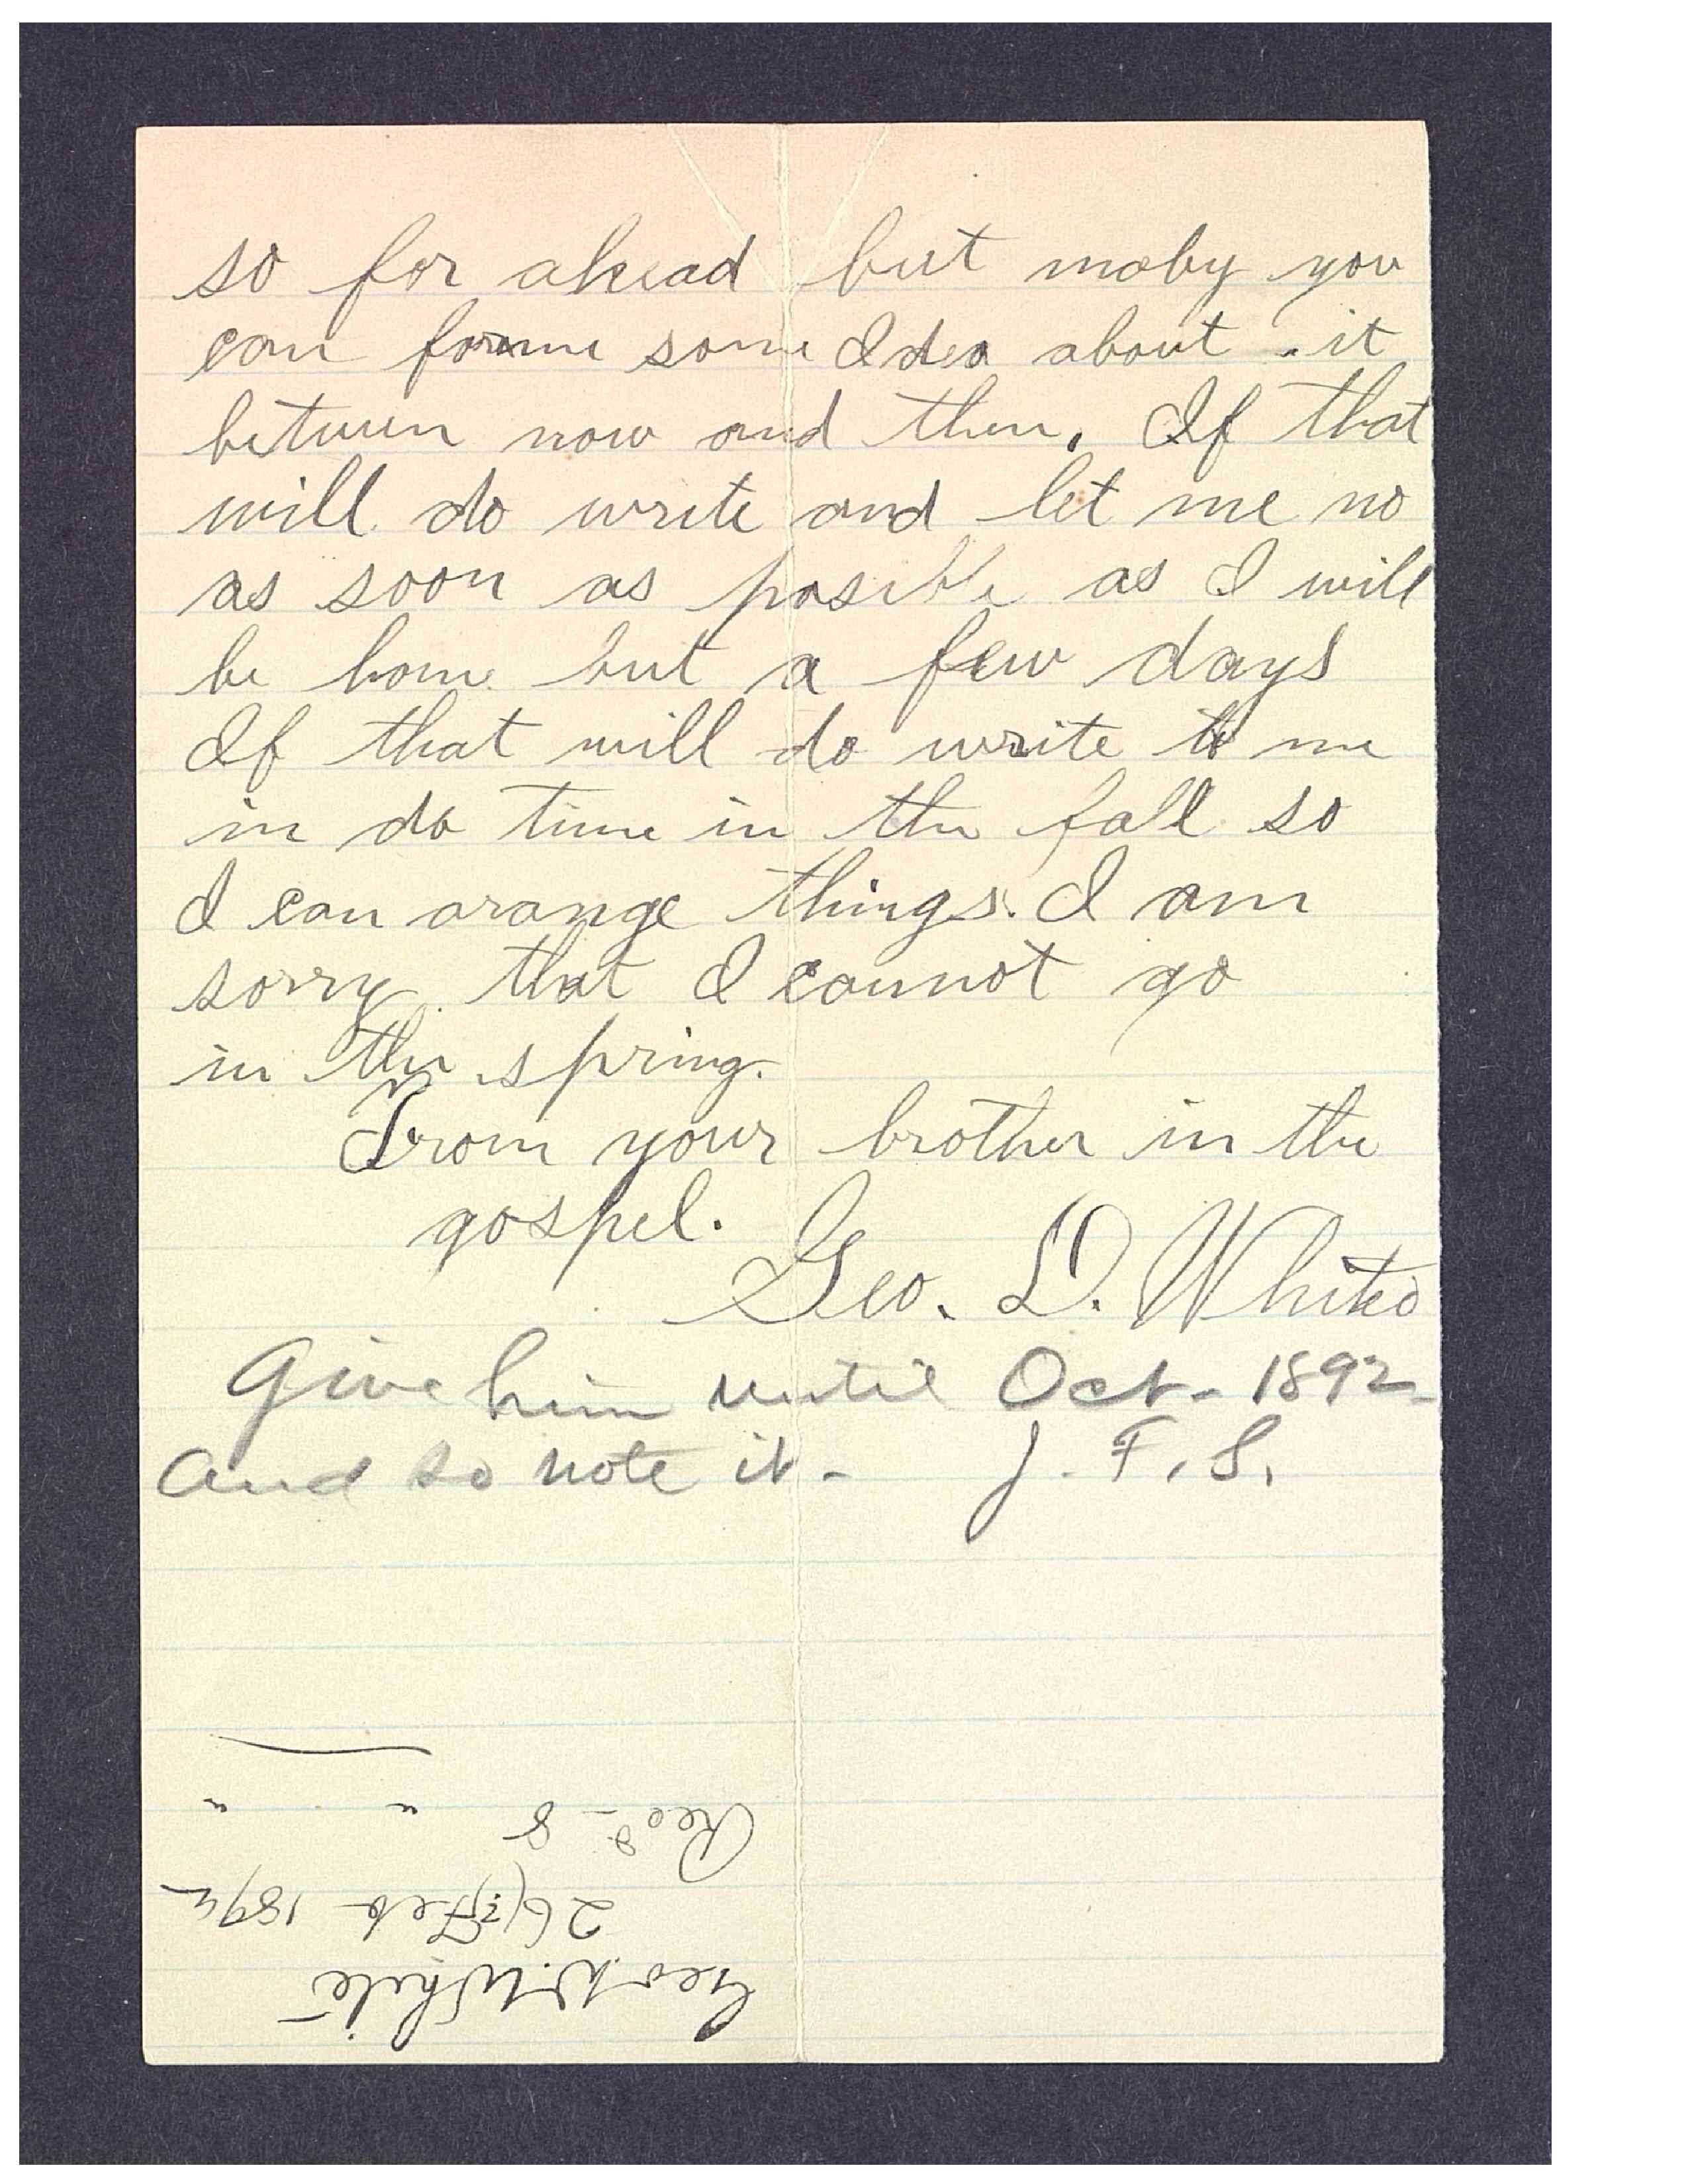 so for ahead but maby you
can forme some Idea about it
between now and then. If that
will do write and let me no
as soon as posible as I will
be home but a few days
If that will do write to me
in do time in the fall so
I can arange things. I am
sorry that I cannot go
in the spring.
From your brother in the
gospel.
Geo. D. White
Give him until Oct - 1892 -
and so note it - J. F. S.
Geo. D. White
26 Feb 1892
Recd - 8 " "